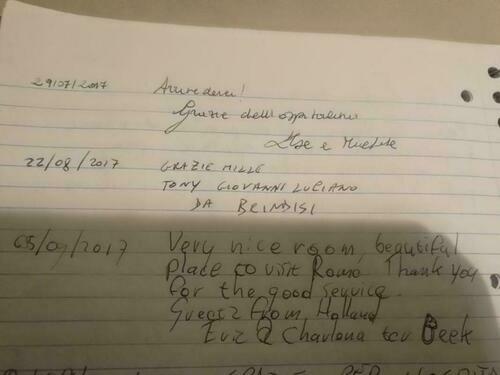 29/07/2017 Arrivederci!
Grazie dell'ospitalità
Ilse e
22/08/2017 GRAZIE MILLE
TONY GIOVANNI LUCIANO
DA BRINDISI
05/09/2017 Very nice room, beautiful
place to visit Roma. Thank you
for the good service.
Guests from Holland
ter Beek